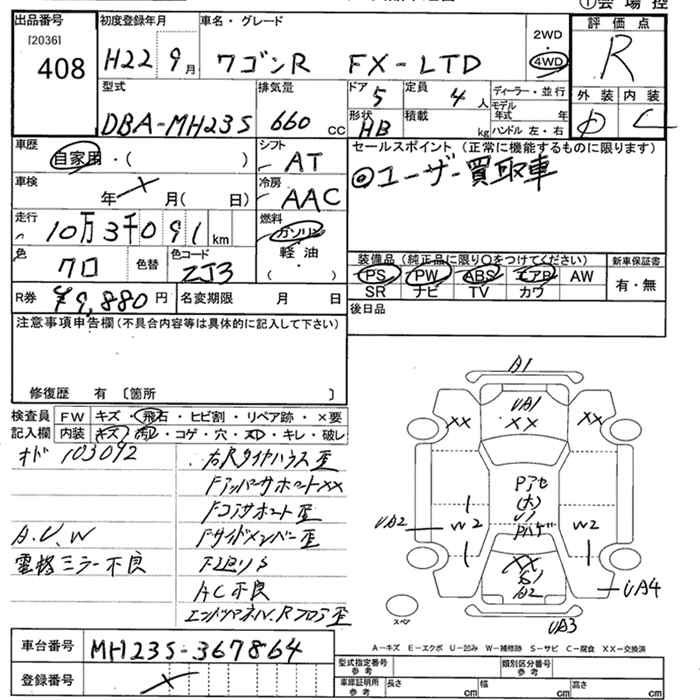 ①会場控
出品番号
[2036]
408
初度登録年月
H22 9月
車名・グレード
ワゴンR FX-LTD
2WD
・
4WD
評価点
R
外装 内装
D C
型式
DBA-MH23S
排気量
660 cc
ドア 5
形状 HB
定員 4人
積載 kg
ディーラー・並行
モデル年式 年
ハンドル 左・右
車歴
自家用・( )
シフト
AT
車検
年 × 月( 日)
冷房
AAC
走行
10万3千091 km
燃料
ガソリン
・
軽油
( )
色
クロ
色替
色コード
ZJ3
R券 ¥9,880円
名変期限 月 日
セールスポイント (正常に機能するものに限ります)
◎ユーザー買取車
装備品 (純正品に限り〇をつけてください)
PS PW ABS エアB AW
SR ナビ TV カワ
新車保証書
有・無
後日品
注意事項申告欄(不具合内容等は具体的に記入して下さい)
修復歴 有 〔箇所 〕
検査員
記入欄
FW キズ・飛石・ヒビ割・リペア跡・×要
内装 キズ・汚レ・コゲ・穴・スレ・キレ・破レ
オド 103092
右Rタイヤハウス歪
Fアッパーサポートxx
Fコアサポート歪
A.U,W
Fサイドメンバー歪
電格ミラー不良
AC不良
A1
UA1
XX
XX
XX
Pアセ
(大)
U1
Pハゲ
UA2
W2
W2
XX
S1
A2
UA4
UA3
スペア
A-キズ E-エクボ U-凹み W-補修跡 S-サビ C-腐食 XX-交換済
車台番号
MH23S-367864
登録番号
×
型式指定番号
参考
類別区分番号
参考
車庫証明用
参考
長さ cm
幅 cm
高さ cm